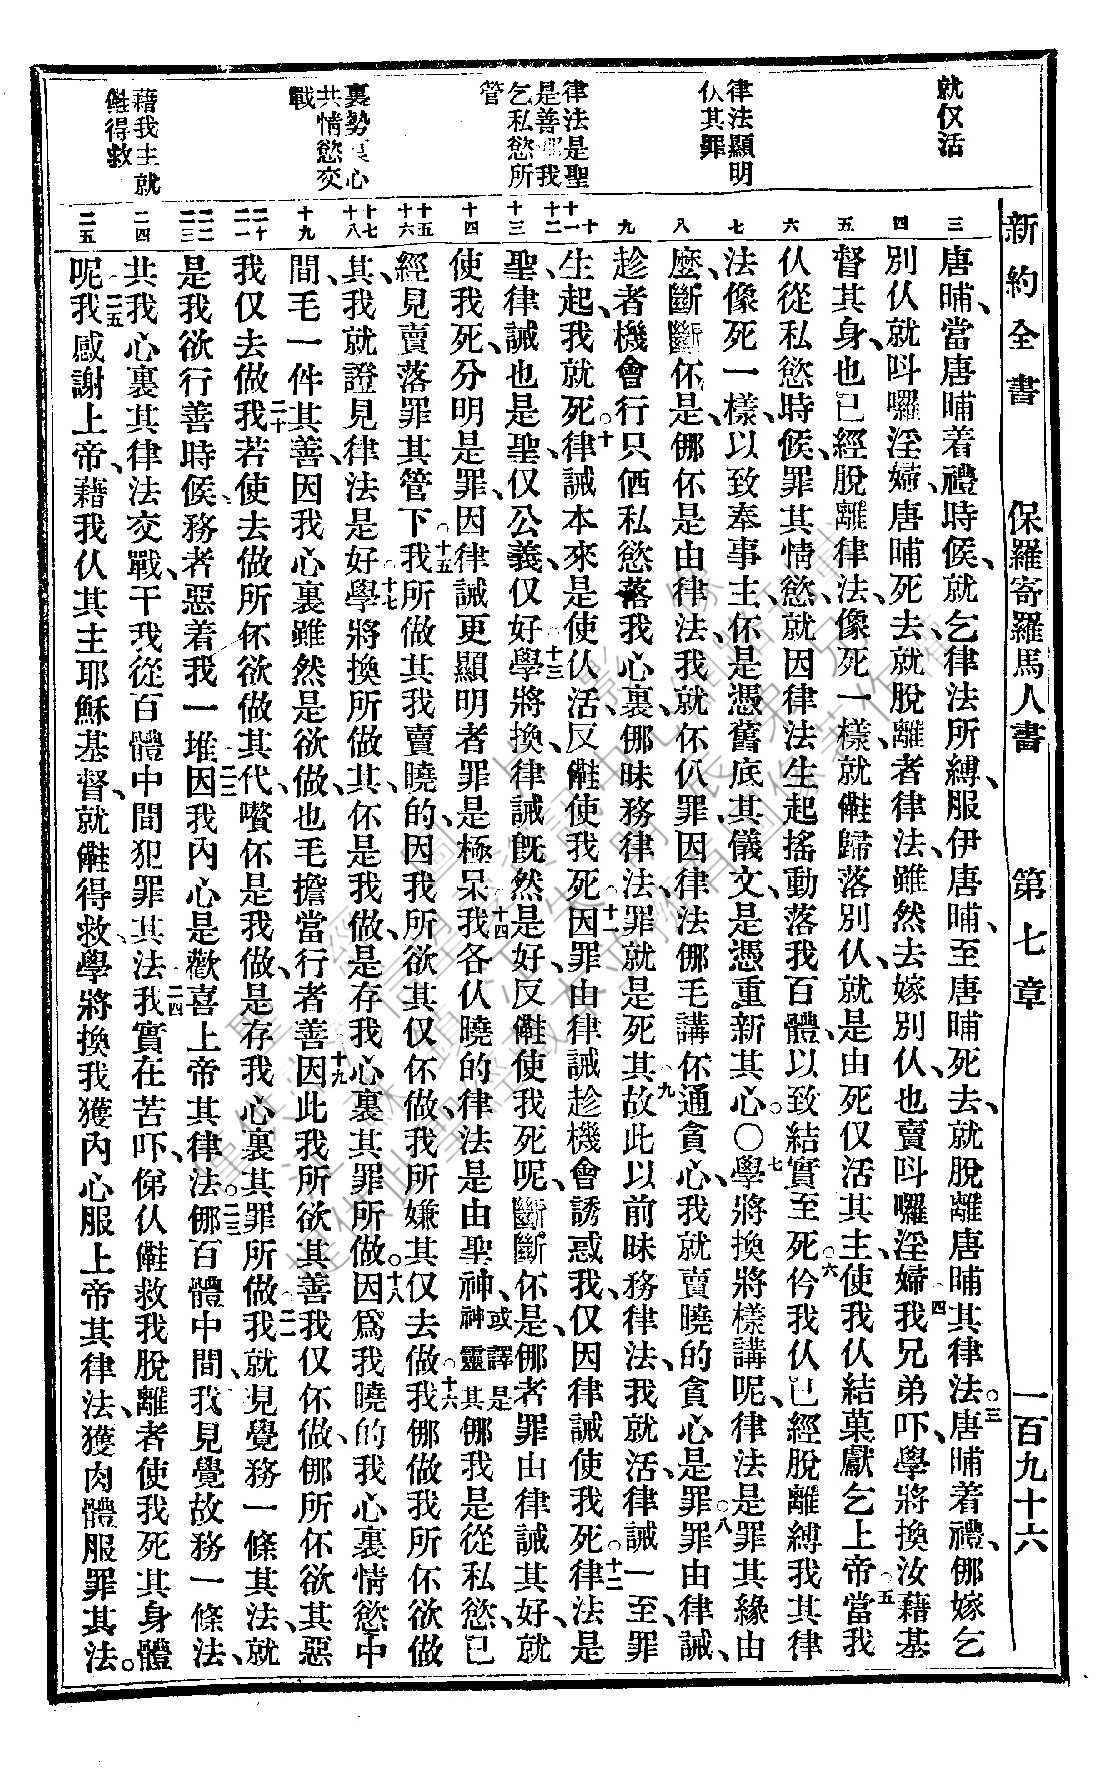 新約全書　保羅寄羅馬人書　第七章　一百九十六
就仅活
律法顯明
仈其罪
律法是聖
是善 我
乞私慾所
管
裏勢 心
共情慾交
戰
藉我主就
㑲得救
三
四
五
六
七
八
九
十
十一
十二
十三
十四
十五
十六
十七
十八
十九
二十
二一
二二
二三
二四
二五
唐晡、當唐晡着禮時候、就乞律法所縛、服伊唐晡、至唐晡死去、就脫離唐晡其律法○三唐晡着禮、㑚嫁乞
別仈就呌囉淫婦、唐晡死去、就脫離者律法、雖然去嫁別仈、也賣呌囉淫婦○四我兄弟吓、學將換汝藉基
督其身、也已經脫離律法、像死一樣、就㑲歸落別仈、就是由死仅活其主、使我仈結菓獻乞上帝○五當我
仈從私慾時候、罪其情慾、就因律法生起搖動落我百體、以致結實至死○六仱我仈已經脫離縛我其律
法像死一樣、以致奉事主、伓是憑舊底其儀文、是憑重新其心○○七學將換將樣講呢、律法是罪其緣由
麽、斷斷伓是、㑚伓是由律法、我就伓仈罪、因律法㑚毛講伓通貪心、我就賣曉的貪心是罪○八罪由律誡、
趁者機會行只㑄私慾落我心裏、㑚昧務律法、罪就是死其○九故此以前昧務律法、我就活、律誡一至、罪
生起、我就死○十律誡本來是使仈活、反㑲使我死○十一因罪由律誡趁機會誘惑我、仅因律誡使我死○十二律法是
聖、律誡也是聖、仅公義、仅好○十三學將換律誡旣然是好、反㑲使我死呢、斷斷伓是、㑚者罪由律誡其好、就
使我死、分明是罪、因律誡更顯明者罪是極呆○十四我各仈曉的律法是由聖神、或譯是神靈其㑚我是從私慾、已
經見賣落罪其管下○十五我所做其我賣曉的、因我所欲其仅伓做、我所嫌其仅去做○十六我㑚做我所伓欲做
其、我就證見律法是好○十七學將換所做其、伓是我做、是存我心裏其罪所做○十八因爲我曉的我心裏情慾中
間、毛一件其善、因我心裏雖然是欲做、也毛擔當行者善○十九因此我所欲其善、我仅伓做、㑚所伓欲其惡、
我仅去做○二十我若使去做所伓欲做其代、囋伓是我做、是存我心裏其罪所做○二一我就見覺務一條其法、就
是我欲行善時候、務者惡着我一堆○二二因我內心是歡喜上帝其律法○二三㑚百體中間、我見覺故務一條法、
共我心裏其律法交戰、干我從百體中間犯罪其法○二四我實在苦吓、俤仈㑲救我脫離者使我死其身體
呢○二五我感謝上帝、藉我仈其主耶穌基督、就㑲得救、學將換我獲內心服上帝其律法、獲肉體服罪其法。